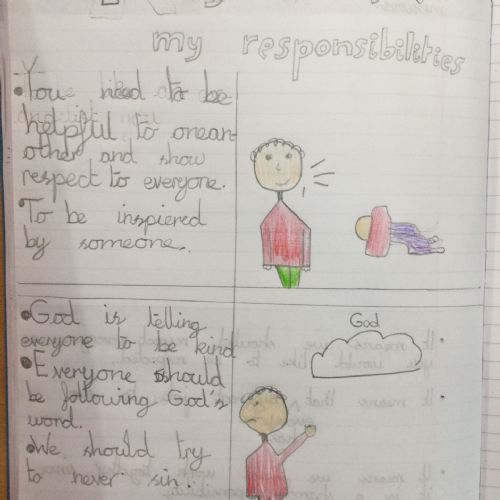 my responsibilities
• You need to be
helpful to onean-
other and show
respect to everyone.
• To be inspiered
by someone.
• God is telling
everyone to be kind
• Everyone should
be following God's
word.
• We should try
to never sin.
God